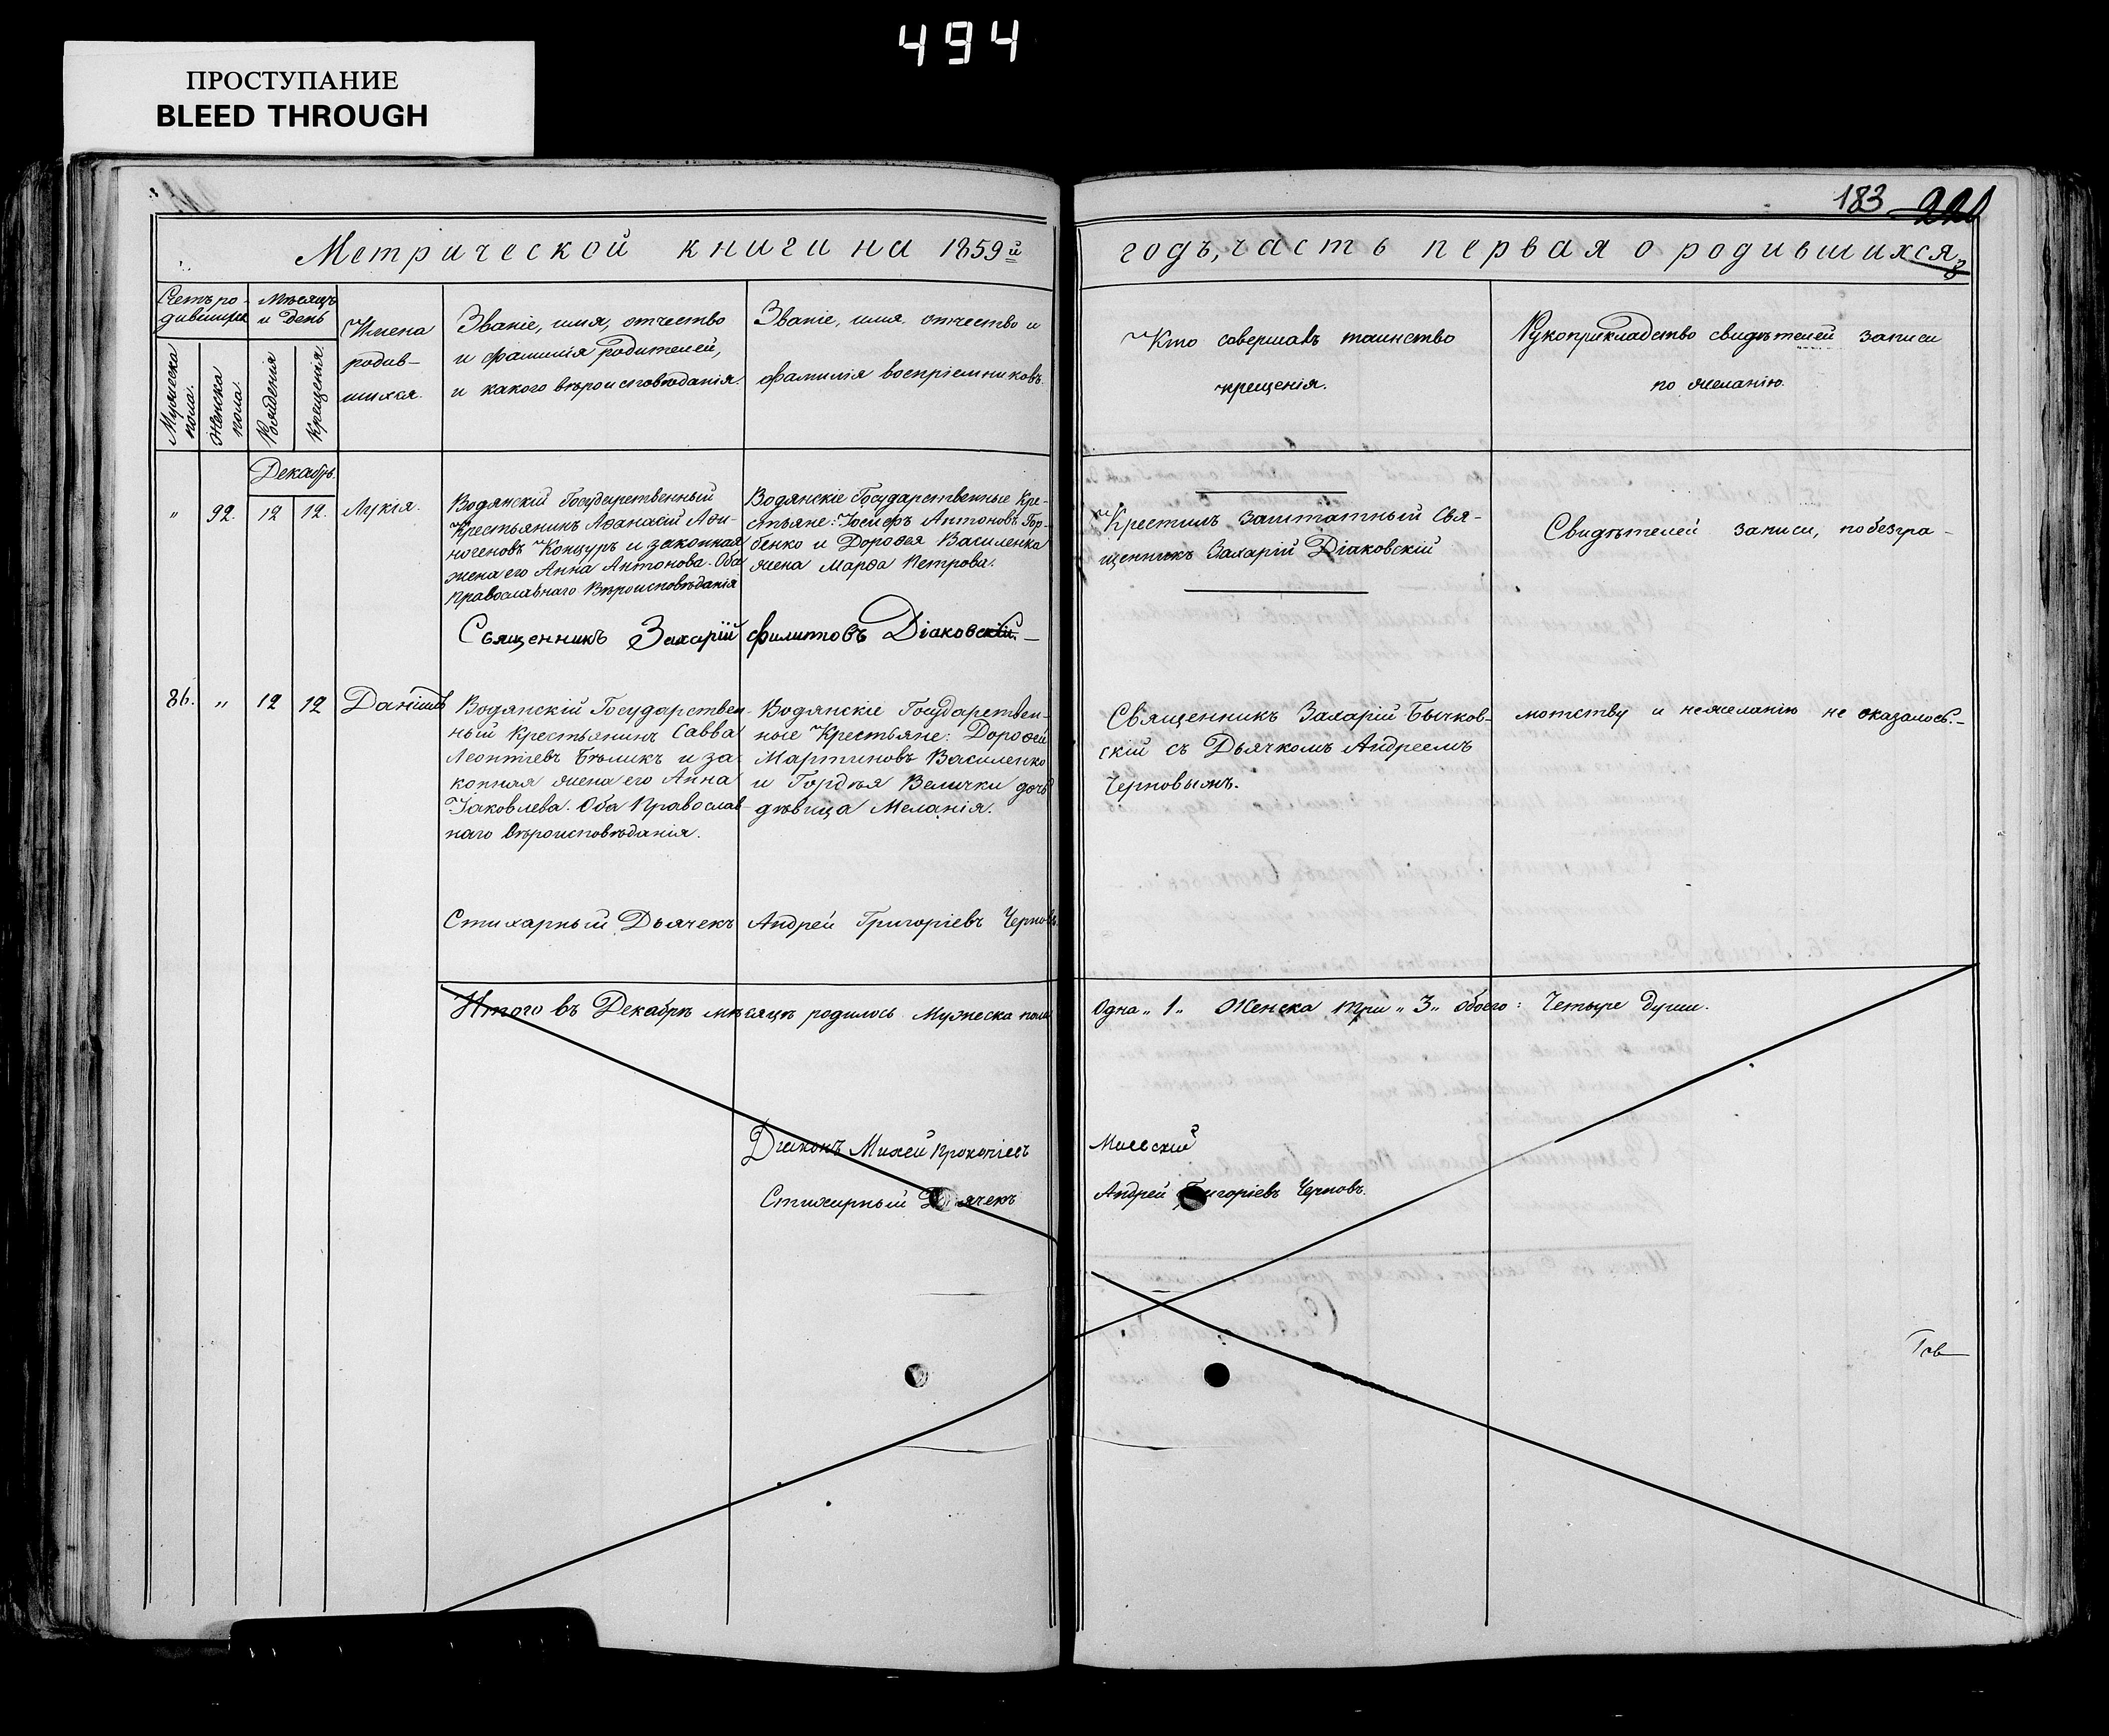 494
ПРОСТУПАНИЕ
BLEED THROUGH
183 221
Метрической книги на 1859й
годъ, часть первая о родившихся
Счетъ ро-
дившихся
Мужеска пола.
Женска пола.
Мѣсяцъ
и день
Рождения
Крещения.
Имена
родив-
шихся.
Званіе, имя, отчество
и фамилія родителей,
и какого вѣроисповѣданія.
Званіе, имя, отчество и
фамилія воспріемниковъ.
Кто совершавъ таинство
крещенія.
Рукоприкладство свидѣтелей записи
по желанію.
Декабрь.
" 92. 12 12. Лукія.
Водянскій Государственный
Крестьянинъ Аѳанасій Аѳи-
ногеновъ Концуръ и законная
жена его Анна Антонова. Оба
Православнаго Вѣроисповѣданія
Водянскіе Государственные Кре-
стьяне: Іосифъ Антоновъ Гор-
бенко и Дороѳея Василенка
жена Марѳа Петрова.
Крестилъ Заштатный Свя-
щенникъ Захарій Діаковскій
Свидѣтелей записи, по безгра-
Священникъ Захарій Филиповъ Діаковскій.
86. " 12 12 Даніилъ
Водянскій Государствен-
ный Крестьянинъ Савва
Леонтіевъ Бѣликъ и за-
конная жена его Анна
Іаковлева. Оба Православ-
наго вѣроисповѣданія.
Водянскіе Государствен-
ные Крестьяне: Дороѳей
Мартиновъ Василенко
и Гордѣя Велички дочь
дѣвица Меланія.
Священникъ Захарій Бычков-
скій съ Дьячкомъ Андреемъ
Черновымъ.
мотству и нежеланію не оказалось.
Стихарный Дьячекъ Андрей Григоріевъ Черновъ.
Итого въ Декабрѣ мѣсяцѣ родилось Мужеска пола
Одна "1" Женска три "3" обоего: Четыре души.
Діаконъ Михей Прокопіевъ
Стихарный Дьячекъ
Андрей Григоріевъ Черновъ.